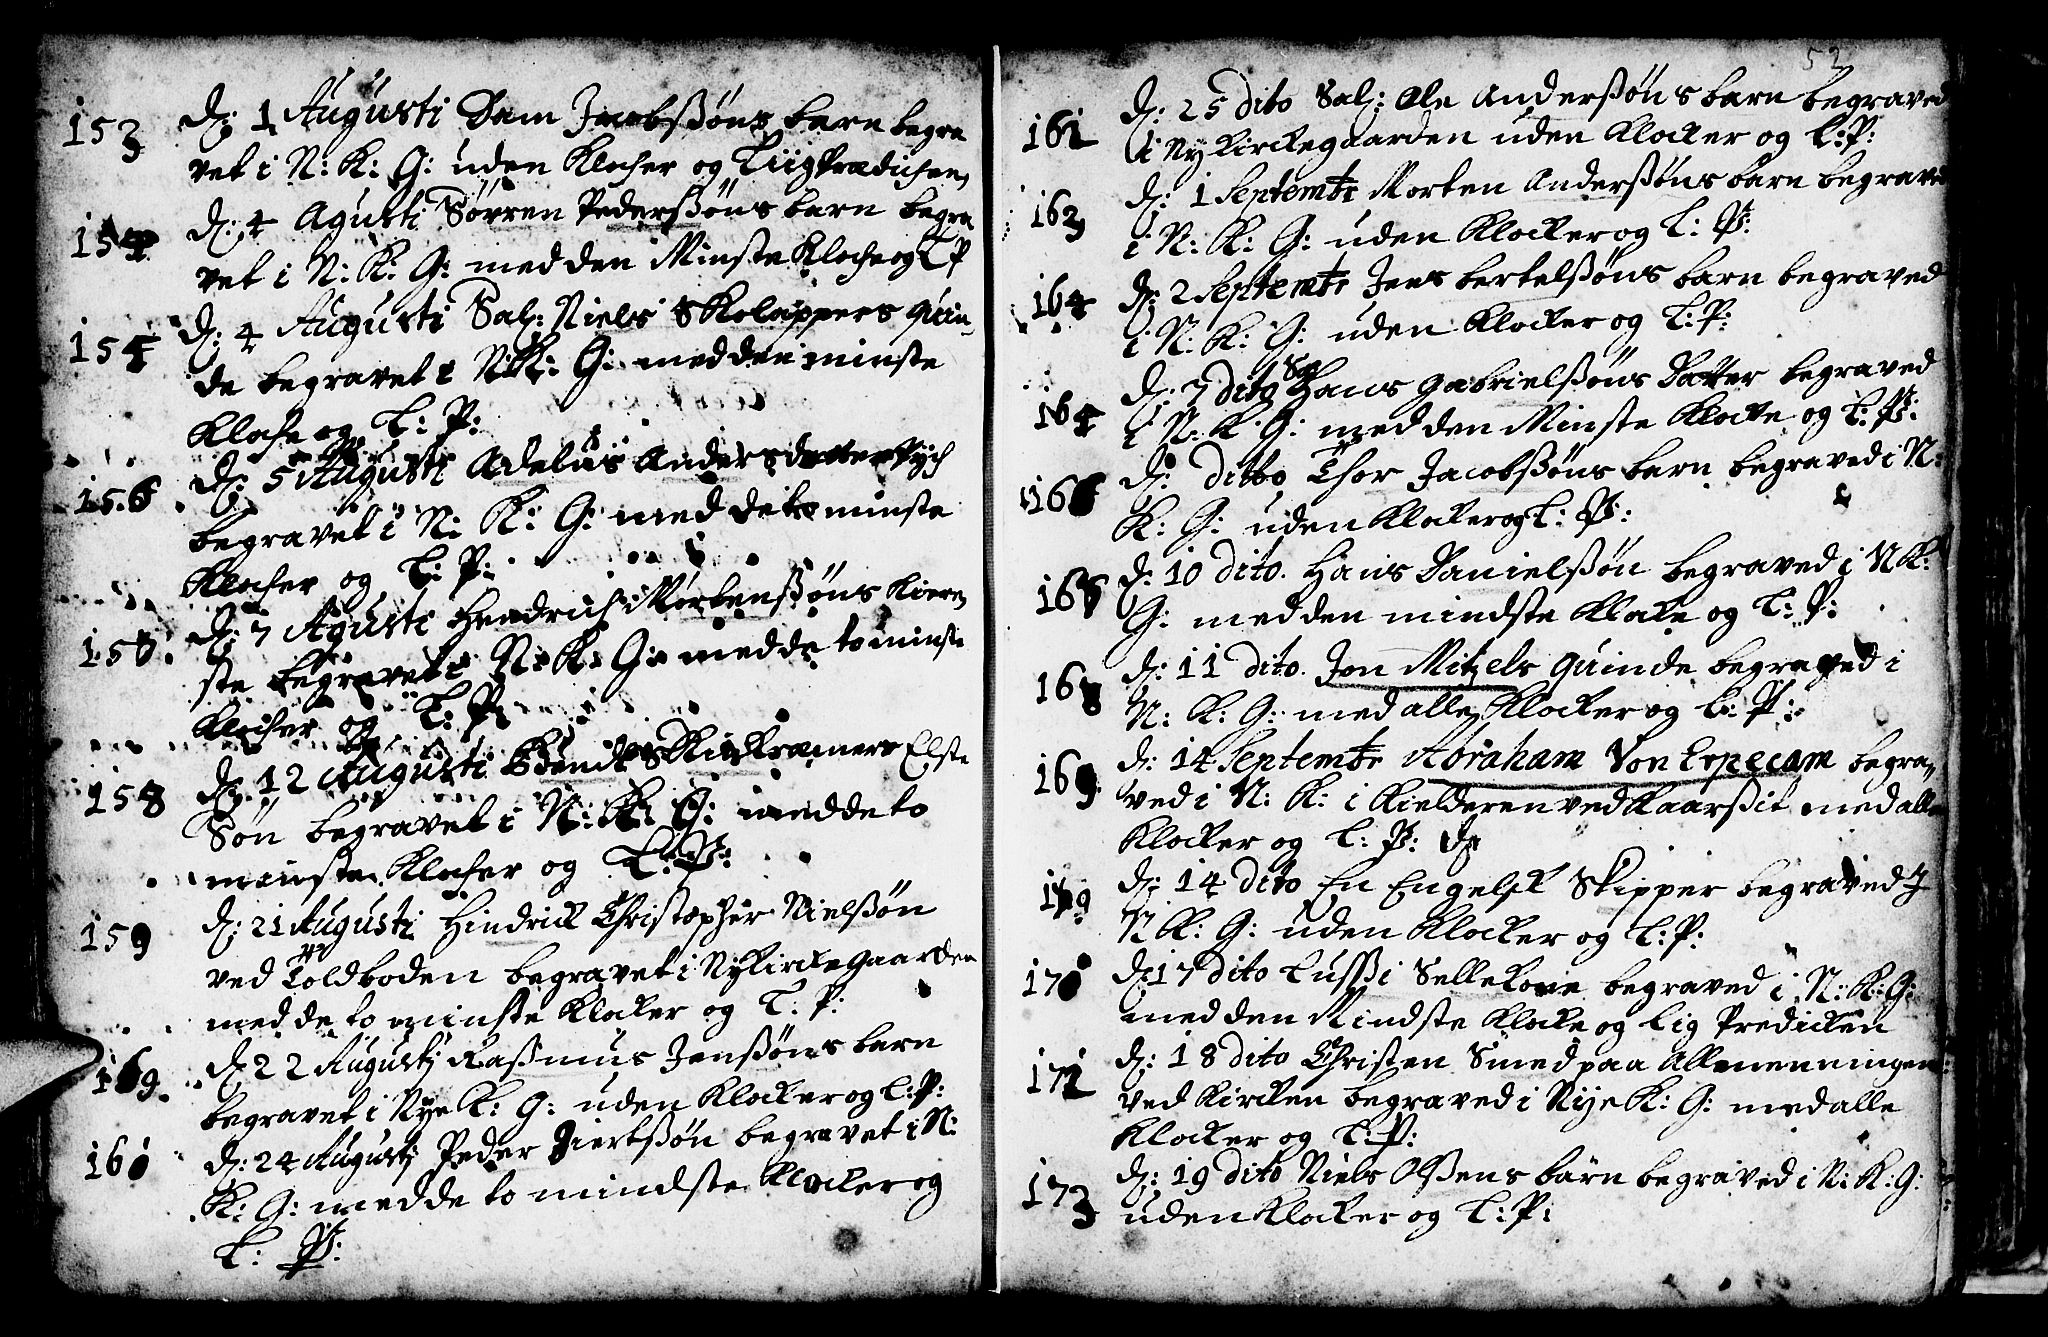 153 d: 1 Augusti Dam Jacobssøns barn begra
vet i N: K: G: uden Klocker og Liigprædichen
154 d: 4 Agusti Sørren Pederssøns barn begra
vet i N: K: G: med den Minste Kloche og L P
154 d: 4 Augusti Sal: Niels Skolappers quin-
de begravet i N: K: G: med den minste
Kloche og L: P:
156 d: 5 Augusti Adelus Andersdatter
begravet i N: K: G: med de to minste
Klocher og L: P:
158 d: 7 Agusti Hendrich Mortenssøns Kiere
ste begravet i N: K: G: med de to minste
Klocher og L: P:
158 d: 12 Augusti Elste
Søn begravet i N: K: G: med de to
minste Klocher og L: P:
159 d: 21 Augusti Hindrick Christopher Nielssøn
ved Toldboden begravet i Nykircke Gaarden
med de to minste Klocker og L: P:
169 d: 22 Augusti Rasmus Jenssøns barn
begravet i Nye K: G: uden Klocker og L: P:
161 d: 24 Augusti Peder begravet i N:
K: G: med de to mindste Klocker og
L: P:
52
161 d: 25 dito Sal: Ole Anderssøns barn begraved
i Ny Kirckegaarden uden Klocker og L: P:
163 d: 1 Septembr Morten Anderssøns barn begraved
i N: K: G: uden Klocker og L: P:
164 d: 2 Septembr Jens bertelssøns barn begraved
i N: K: G: uden Klocker og L: P:
164 d: 7 dito Sal Hans Gabrielssøns Datter begraved
i N: K: G: med den Minste Klocke og L: P:
166 d: ditto Thor Jacobssøns barn begraved i N:
K: G: uden Klocker og L: P:
168 d: 10 dito. Hans Danielssøn begraved i N K:
G: med den mindste Klocke og L: P:
168 d: 11 dito. Jon Mitzels quinde begraved i
N: K: G: med alle Klocker og L: P:
169 d: 14 Septembr Abraham Von Erpecom begra-
ved i N: K: i Kielderen ved Kaarssit med alle
Klocker og L: P:
169 d: 14 dito En Engelsk Skipper begraved J
N K: G: uden Klocker og L: P:
170 d: 17 dito Lussi Sellekone begraved i N: K: G:
med den Mindste Klocke og Lig Predicken
171 d: 18 dito Christen Smed paa Allmenningen
ved Kircken begraved i Nye K: G: med alle
Klocker og L: P:
173 d: 19 dito Niels Olssens barn begraved i N: K: G:
uden Klocker og L: P: